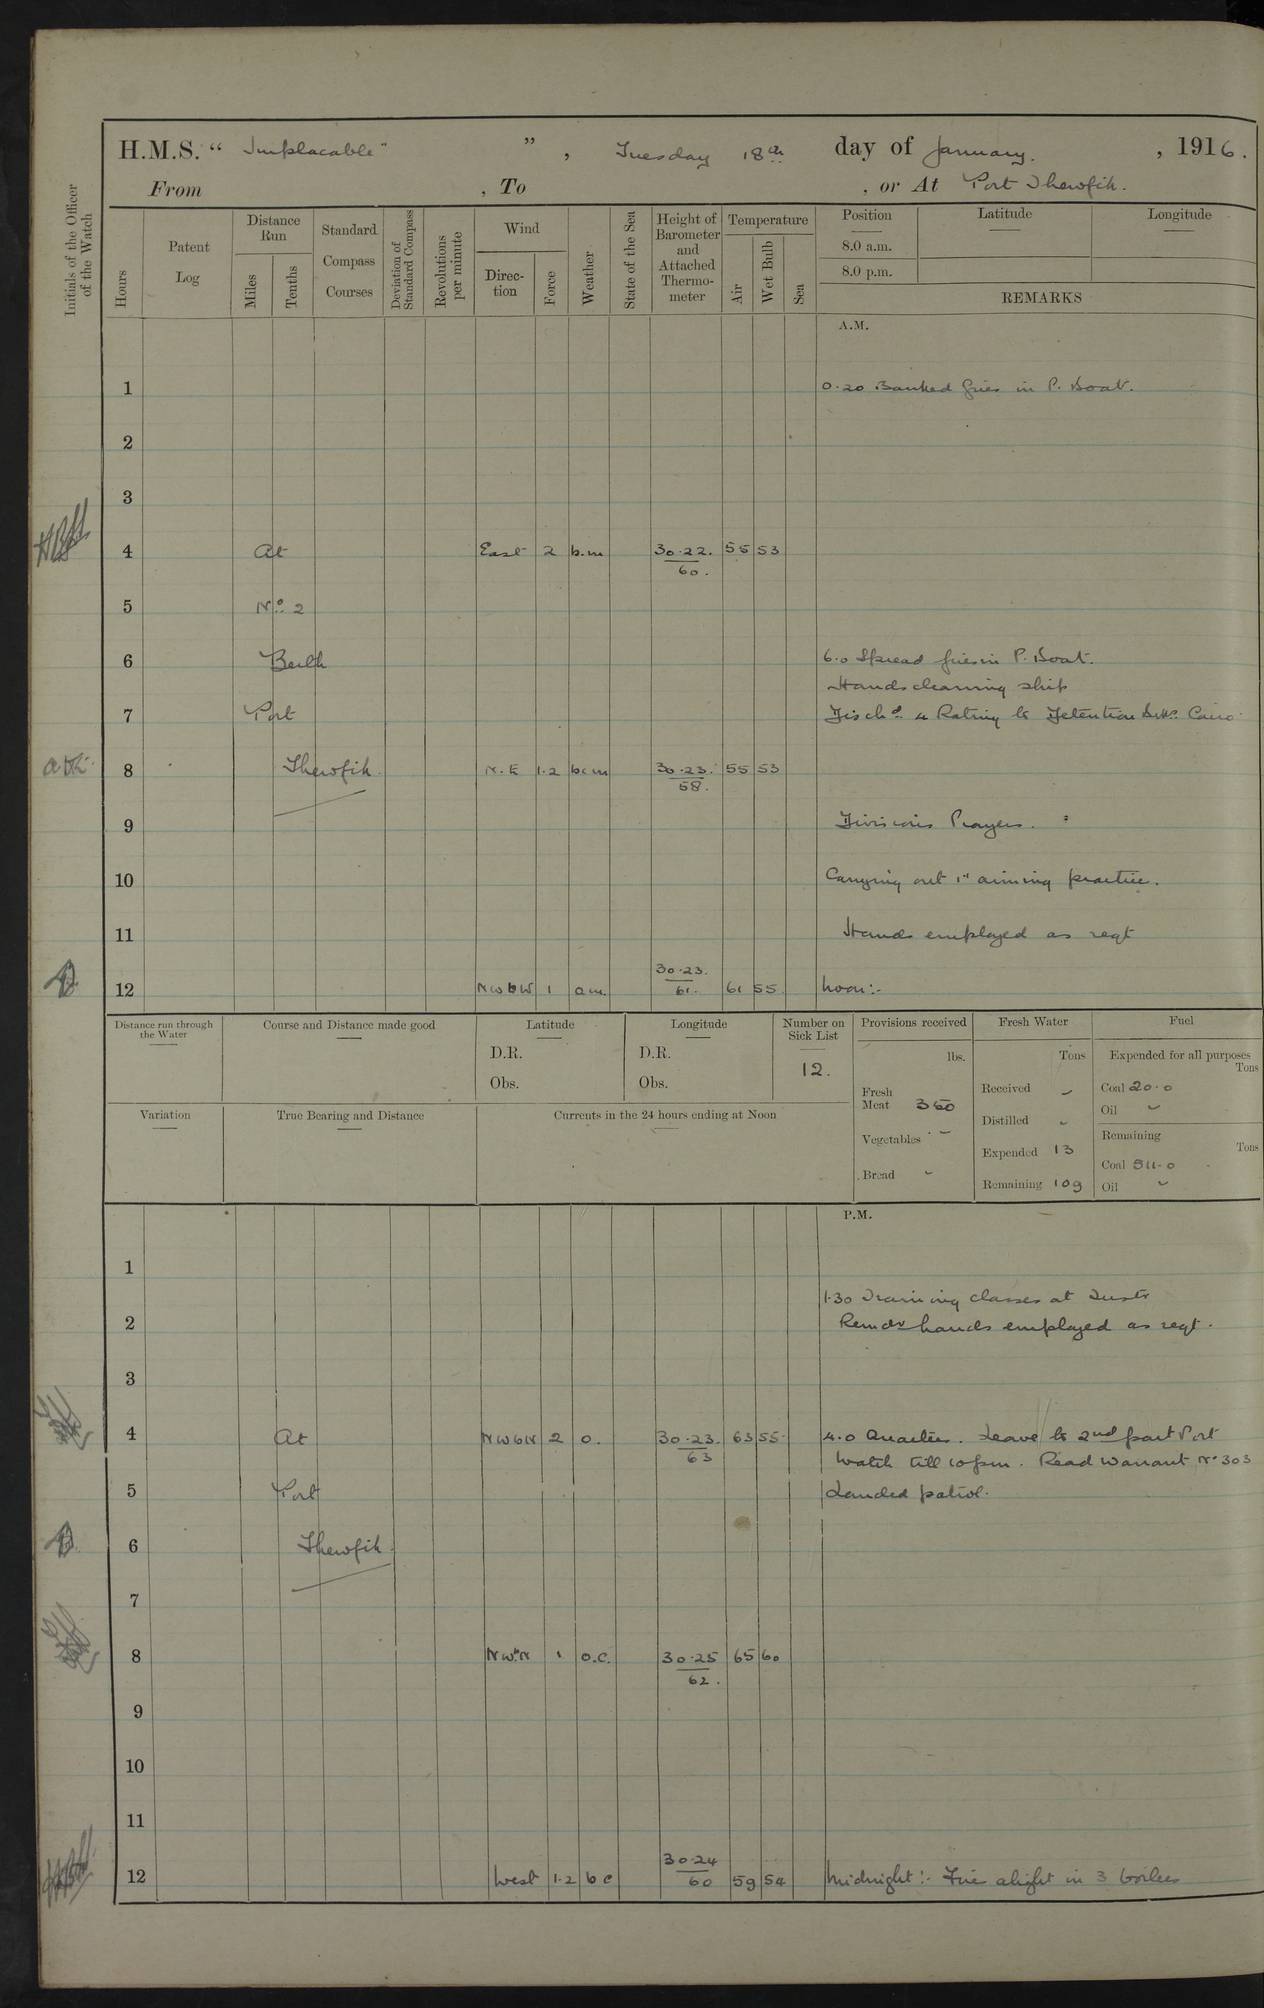 H.M.S. "Implacable" ", Tuesday 18th day of January. , 1916.
From , To , or At Port Thewfik.
Initials of the Officer of the Watch
Hours
Patent Log
Distance Run
Miles
Tenths
Standard Compass Courses
Deviation of Standard Compass
Revolutions per minute
Wind
Direction
Force
Weather
State of the Sea
Height of Barometer and Attached Thermometer
Temperature
Air
Wet Bulb
Sea
Position
8.0 a.m.
8.0 p.m.
Latitude
Longitude
REMARKS
A.M.
1 0.20 Banked fires in P. Boat.
2
3
4 At East 2 b.m 30.22. 60. 55 53
5 No. 2
6 Berth 6.0 Spread fires in P. Boat.
Hands cleaning ship
7 Port Disch'd 4 Rating to Detention Bks. Cairo
8 Thewfik. N.E 1.2 bcm 30.23. 58. 55 53
9 Divisions Prayers.
10 Carrying out 1" aiming practice.
11 Hands employed as reqt
12 NWbW 1 om. 30.23. 61. 61 55 Noon:-
Distance run through the Water
Course and Distance made good
Latitude
D.R.
Obs.
Longitude
D.R.
Obs.
Number on Sick List
12.
Provisions received
lbs.
Fresh Meat 350
Vegetables -
Bread -
Fresh Water
Tons
Received -
Distilled -
Expended 13
Remaining 109
Fuel
Expended for all purposes
Tons
Coal 20.0
Oil -
Remaining
Tons
Coal 511.0
Oil -
Variation
True Bearing and Distance
Currents in the 24 hours ending at Noon
P.M.
1
1.30 Training classes at Instr
2 Remdr hands employed as reqt.
3
4 At NWbN 2 o. 30.23. 63 63 55 4.0 Quarters. Leave to 2nd part Port
Watch till 10pm. Read Warrant No 303
5 Port Landed patrol.
6 Thewfik.
7
8 NWbN 1 o.c. 30.25 62. 65 60
9
10
11
12 West 1.2 bc 30.24 60 59 54 Midnight:- Fires alight in 3 boilers